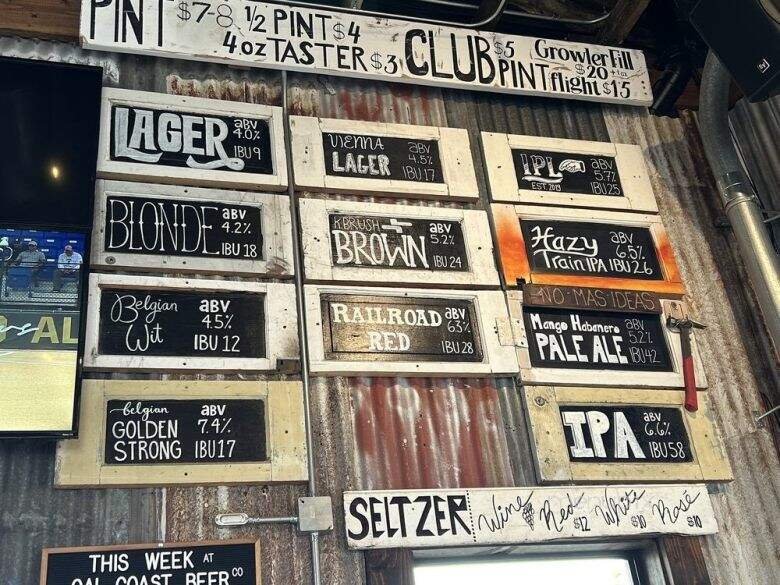 PINT $7-8 ½ PINT $4
4oz TASTER $3
CLUB PINT $5
Growler Fill
$20 + tax
flight $15
LAGER ABV 4.0% IBU 9
BLONDE ABV 4.2% IBU 18
Belgian Wit ABV 4.5% IBU 12
Belgian GOLDEN STRONG ABV 7.4% IBU 17
VIENNA LAGER ABV 4.5% IBU 17
K.BRUSH BROWN ABV 5.2% IBU 24
RAILROAD RED ABV 6.3% IBU 28
IPL EST. 2019 ABV 5.7% IBU 25
Hazy Train IPA ABV 6.5% IBU 26
NO MAS IDEAS
Mango Habanero PALE ALE ABV 5.2% IBU 42
IPA ABV 6.6% IBU 58
SELTZER Wine Red $12 White $10 Rosé $10
THIS WEEK AT
CAL COAST BEER CO
AL